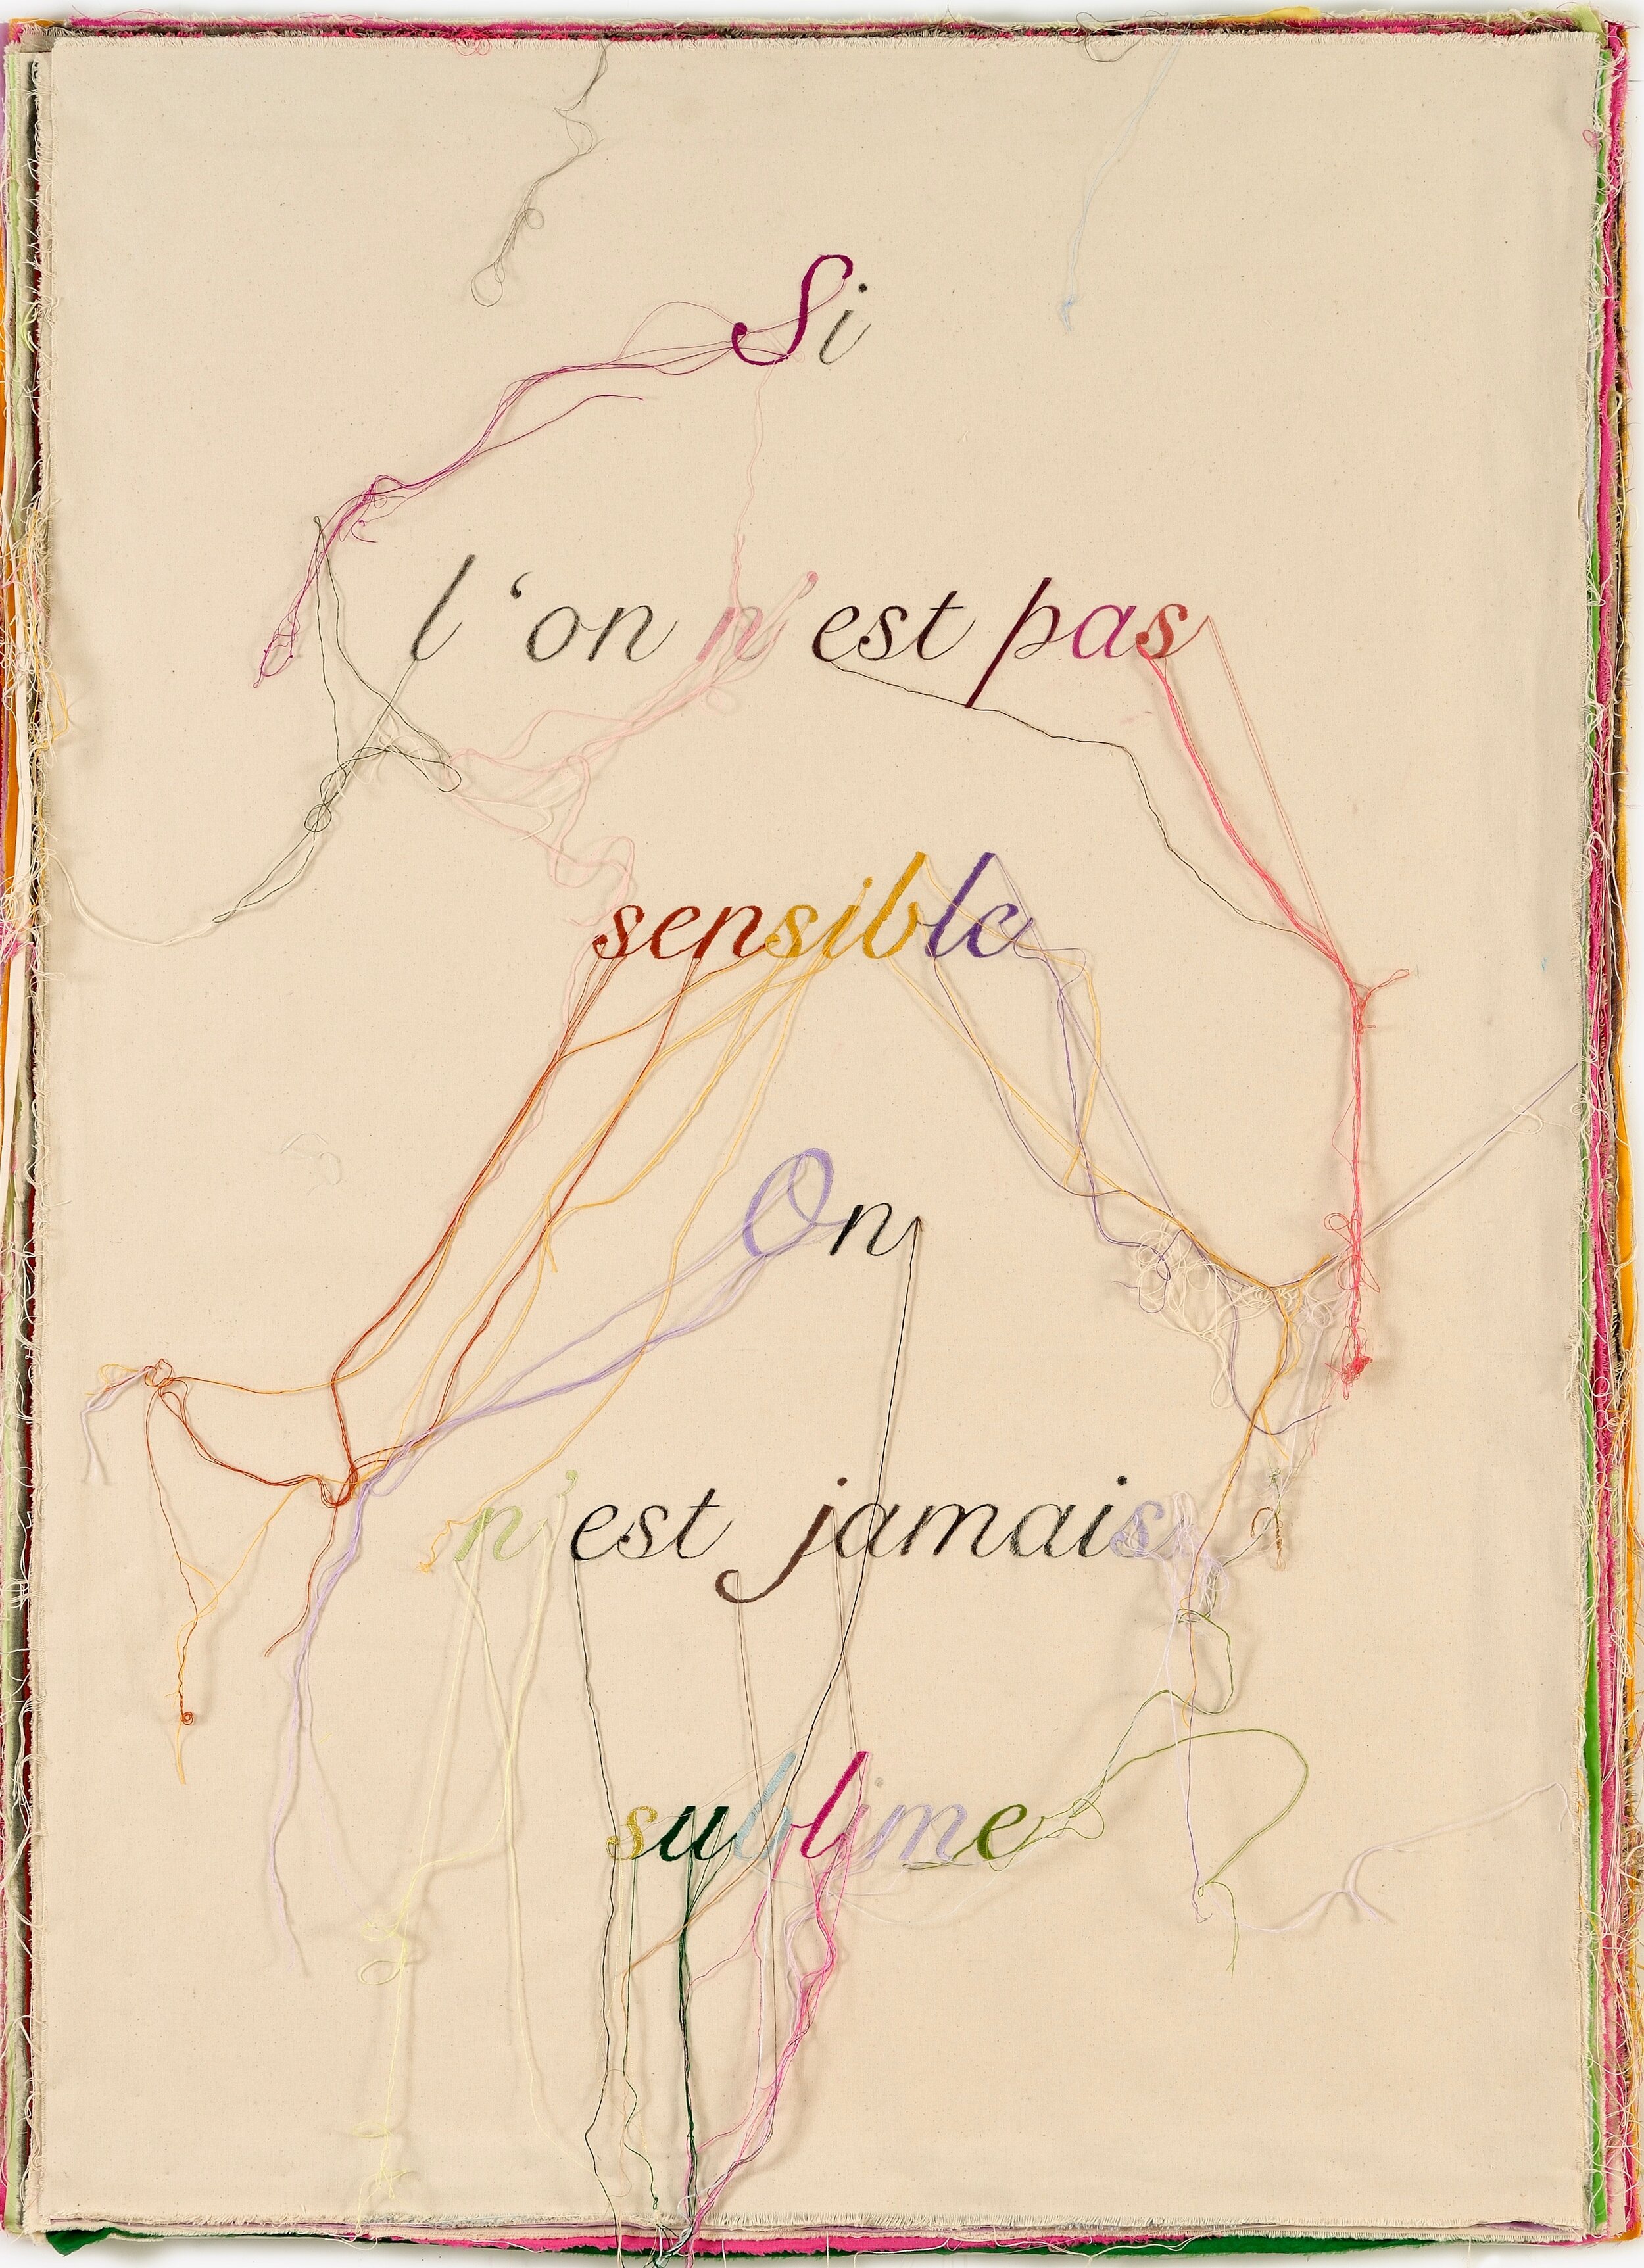 Si
l'on n'est pas
sensible
On
n'est jamais
sublime